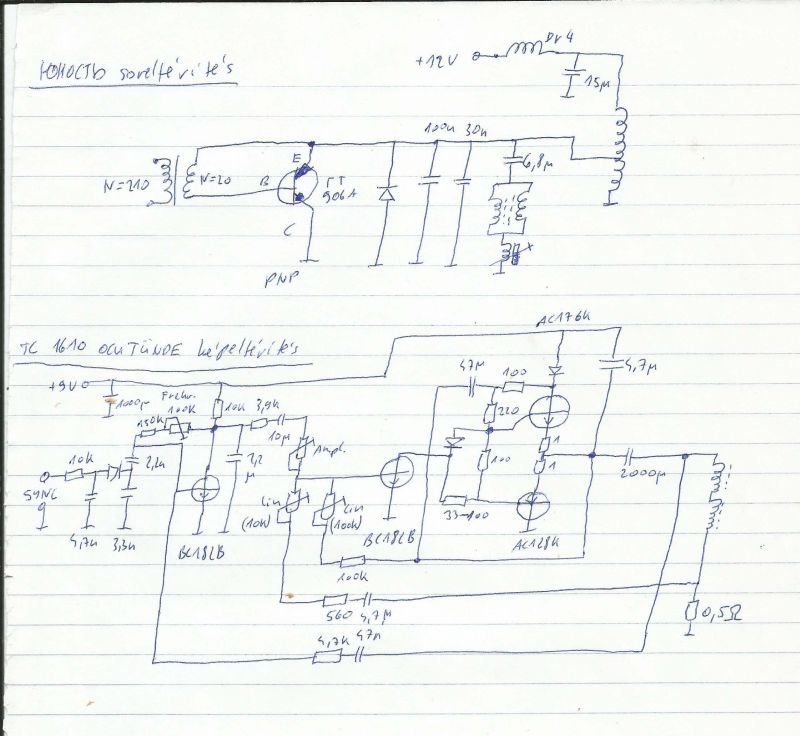 ЮНОСТЬ soreltérítés
+12V
Dr4
15µ
100n 30n
6,8µ
N=210 N=20
E
B
C
ГТ
906A
x
PNP
TC 1610 OCUTÜNDE képeltérítés
AC176K
+9V
1000µ
Frekv.
100k
150k
10k
3,9k
10µ
Ampl.
47µ
100
220
4,7µ
10k
2,2n
2,2
µ
100
1
1
2000µ
SYNC
4,7n
3,3n
BC182B
Lin
(10k)
Lin
(100k)
BC182B
33-100
AC128K
100k
560
4,7µ
0,5Ω
4,7k
47µ